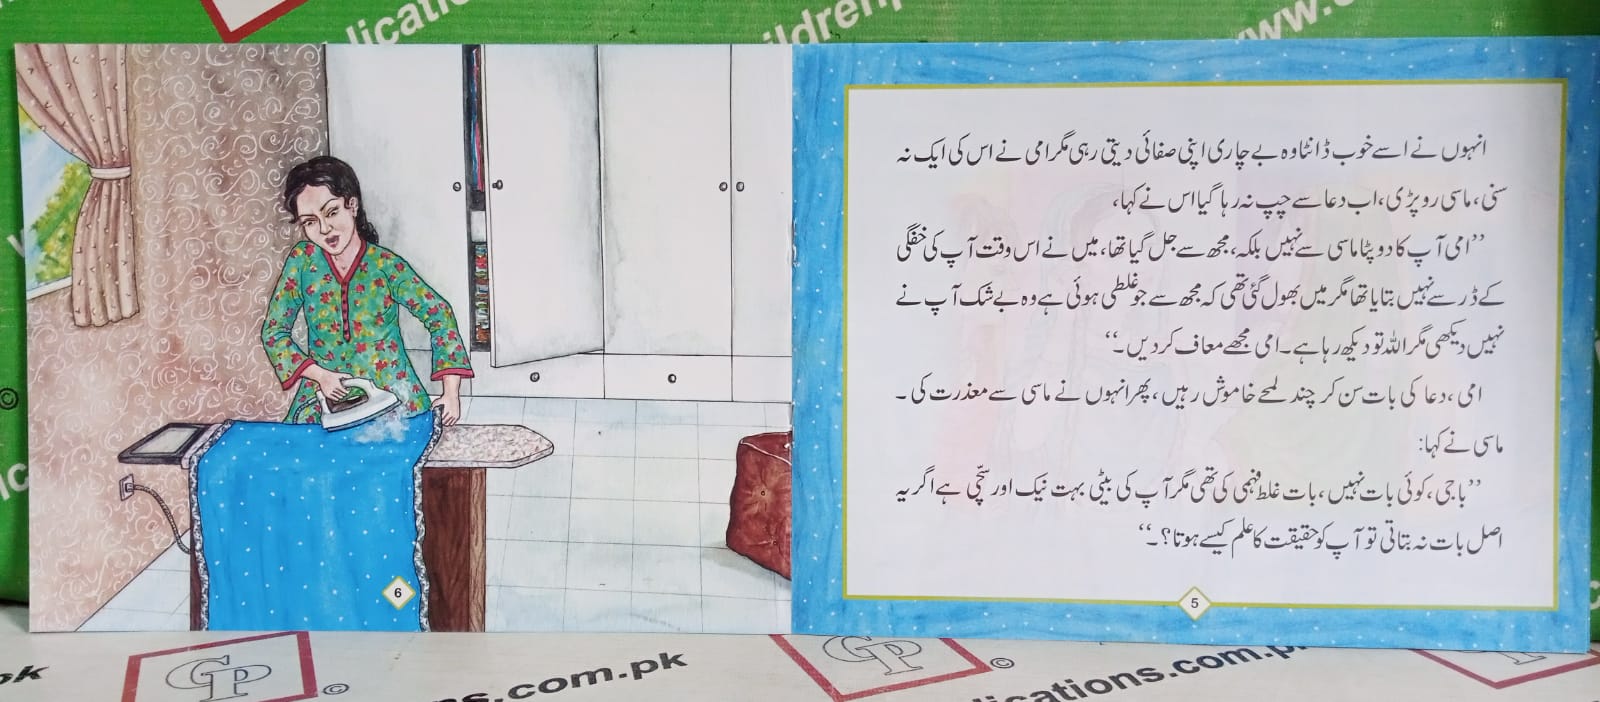 lications
ildrenp
www.c
انہوں نے اسے خوب ڈانٹا وہ بے چاری اپنی صفائی دیتی رہی مگر امی نے اس کی ایک نہ
سنی، ماسی رو پڑی، اب دعا سے چپ نہ رہا گیا اس نے کہا،
’’امی آپ کا دوپٹا ماسی سے نہیں بلکہ، مجھ سے جل گیا تھا، میں نے اس وقت آپ کی خفگی
کے ڈر سے نہیں بتایا تھا مگر میں بھول گئی تھی کہ مجھ سے جو غلطی ہوئی ہے وہ بے شک آپ نے
نہیں دیکھی مگر اللہ تو دیکھ رہا ہے۔ امی مجھے معاف کردیں۔‘‘
امی، دعا کی بات سن کر چند لمحے خاموش رہیں، پھر انہوں نے ماسی سے معذرت کی۔
ماسی نے کہا:
’’باجی، کوئی بات نہیں، بات غلط فہمی کی تھی مگر آپ کی بیٹی بہت نیک اور سچّی ہے اگر یہ
اصل بات نہ بتاتی تو آپ کو حقیقت کا علم کیسے ہوتا؟۔‘‘
5
6
©
pk
CP
©
s.com.pk
CP
©
lications.com.p